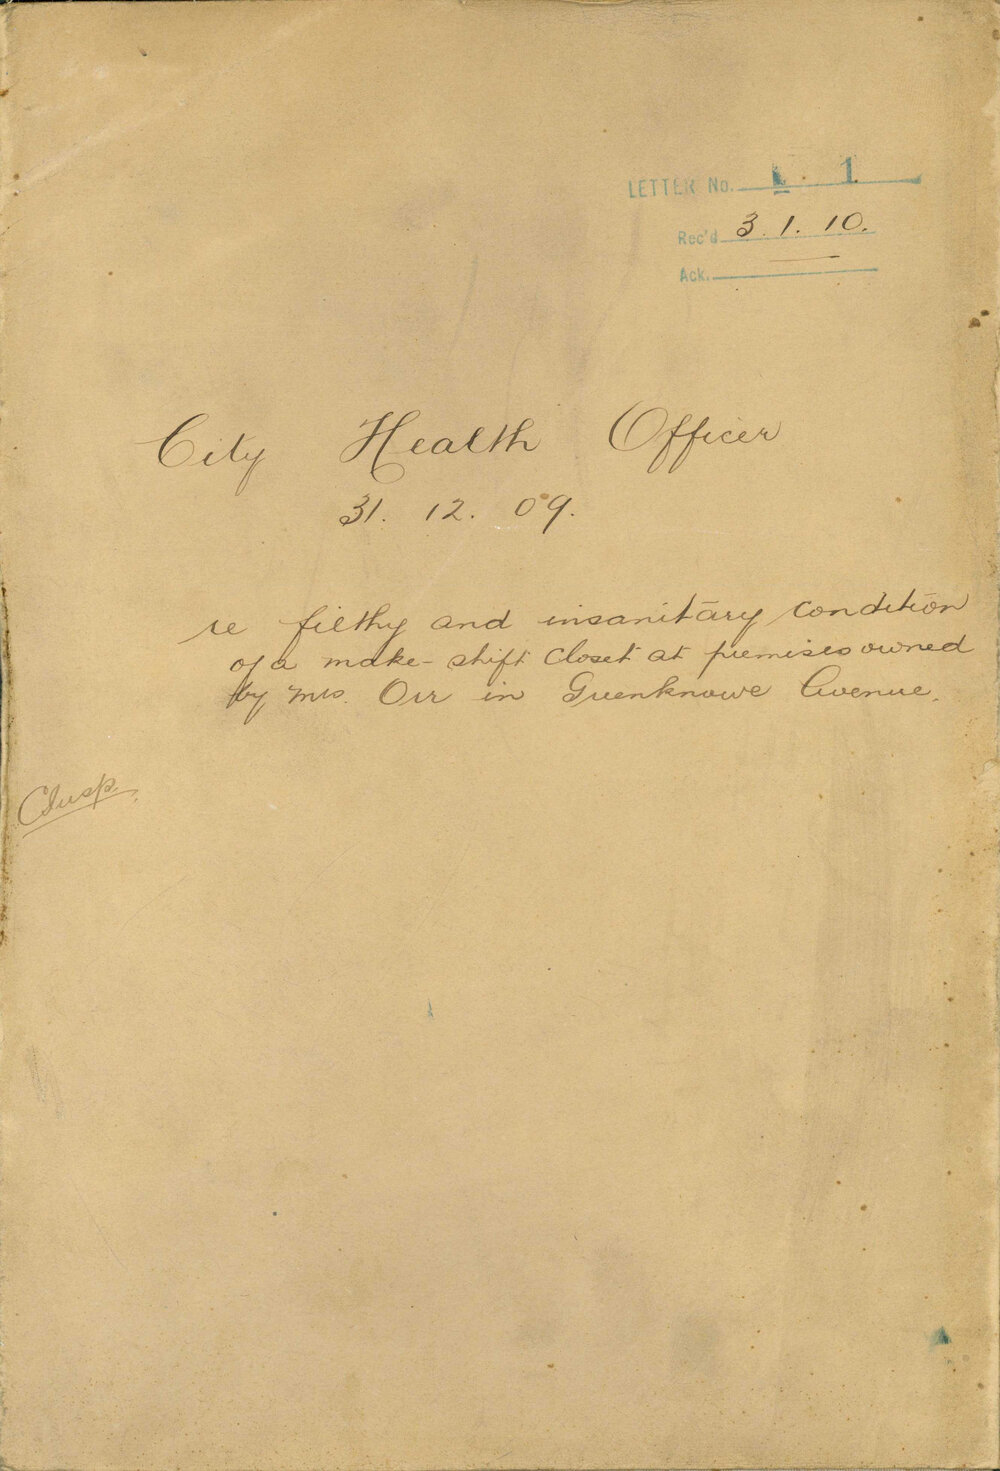 LETTER No. 1
Rec'd 3. 1. 10.
Ack.
City Health Officer
31. 12. 09.
re filthy and insanitary condition
of a make-shift closet at premises owned
by Mrs. Orr in Greenknowe Avenue.